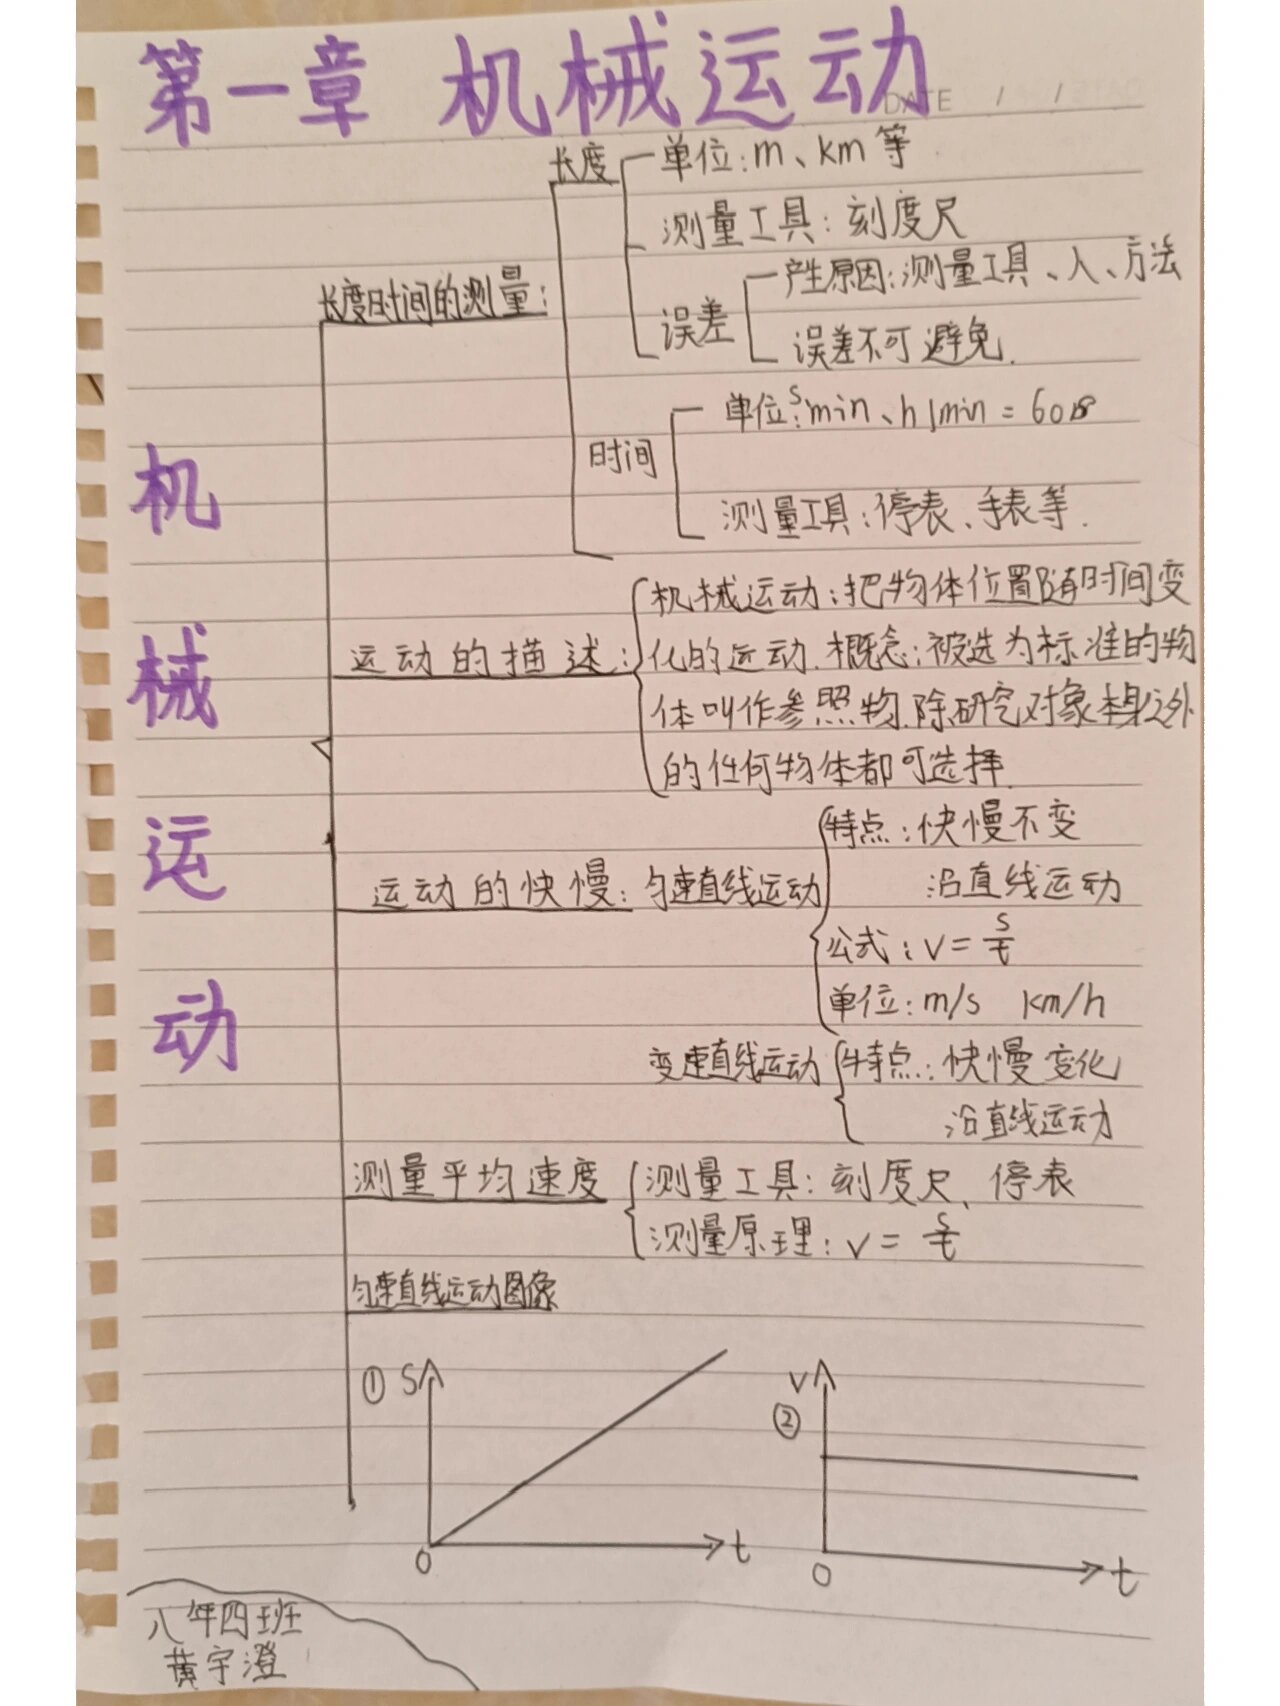 第一章 机械运动
DATE / /
机械运动
长度时间的测量:
长度
单位:m、km等
测量工具:刻度尺
误差
产生原因:测量工具、人、方法
误差不可避免.
时间
单位:s min、h 1min=60s
测量工具:停表、手表等.
运动的描述:
机械运动:把物体位置随时间变
化的运动.概念:被选为标准的物
体叫作参照物.除研究对象本身之外
的任何物体都可选择.
运动的快慢:匀速直线运动
特点:快慢不变
沿直线运动
公式:v=s/t
单位:m/s km/h
变速直线运动
特点:快慢变化
沿直线运动
测量平均速度
测量工具:刻度尺、停表
测量原理:v=s/t
匀速直线运动图像
① s
0 t
v
②
0 t
八年四班
黄宇澄